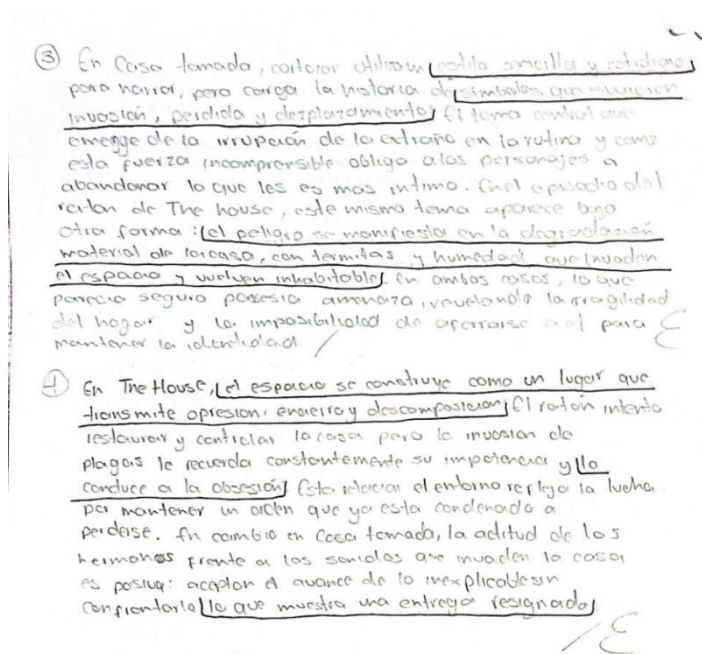 ③ En Casa tomada, cortazar utiliza un estilo sencillo y cotidiano,
para narrar, pero carga la historia de simbolos que sugieren
invasion, perdida y dezplazamiento. El tema central que
emerge de la irrupcion de lo extraño en la rutina y como
esta fuerza incomprensible obliga a los personajes a
abandonar lo que les es mas intimo. En el episodio del
raton de The house, este mismo tema aparece bajo
otra forma: el peligro se manifiesta en la degradacion
material de la casa, con termitas y humedad que invaden
el espacio y vuelven inhabitable. En ambos casos, lo que
parecia seguro amenaza, revelando la fragilidad
del hogar y la imposibilidad de aferrarse a el para
mantener la identidad
④ En The House, el espacio se construye como un lugar que
transmite opresion, encierro y descomposicion. El raton intenta
restaurar y controlar la casa pero la invasion de
plagas le recuerda constantemente su impotencia y lo
conduce a la obsesion. Esta relacion el entorno refleja la lucha
por mantener un orden que ya esta condenado a
perderse. En cambio en Casa tomada, la actitud de los
hermanos frente a los sonidos que invaden la casa
es pasiva: aceptan el avance de lo inexplicable sin
confrontarlo lo que muestra una entrega resignada